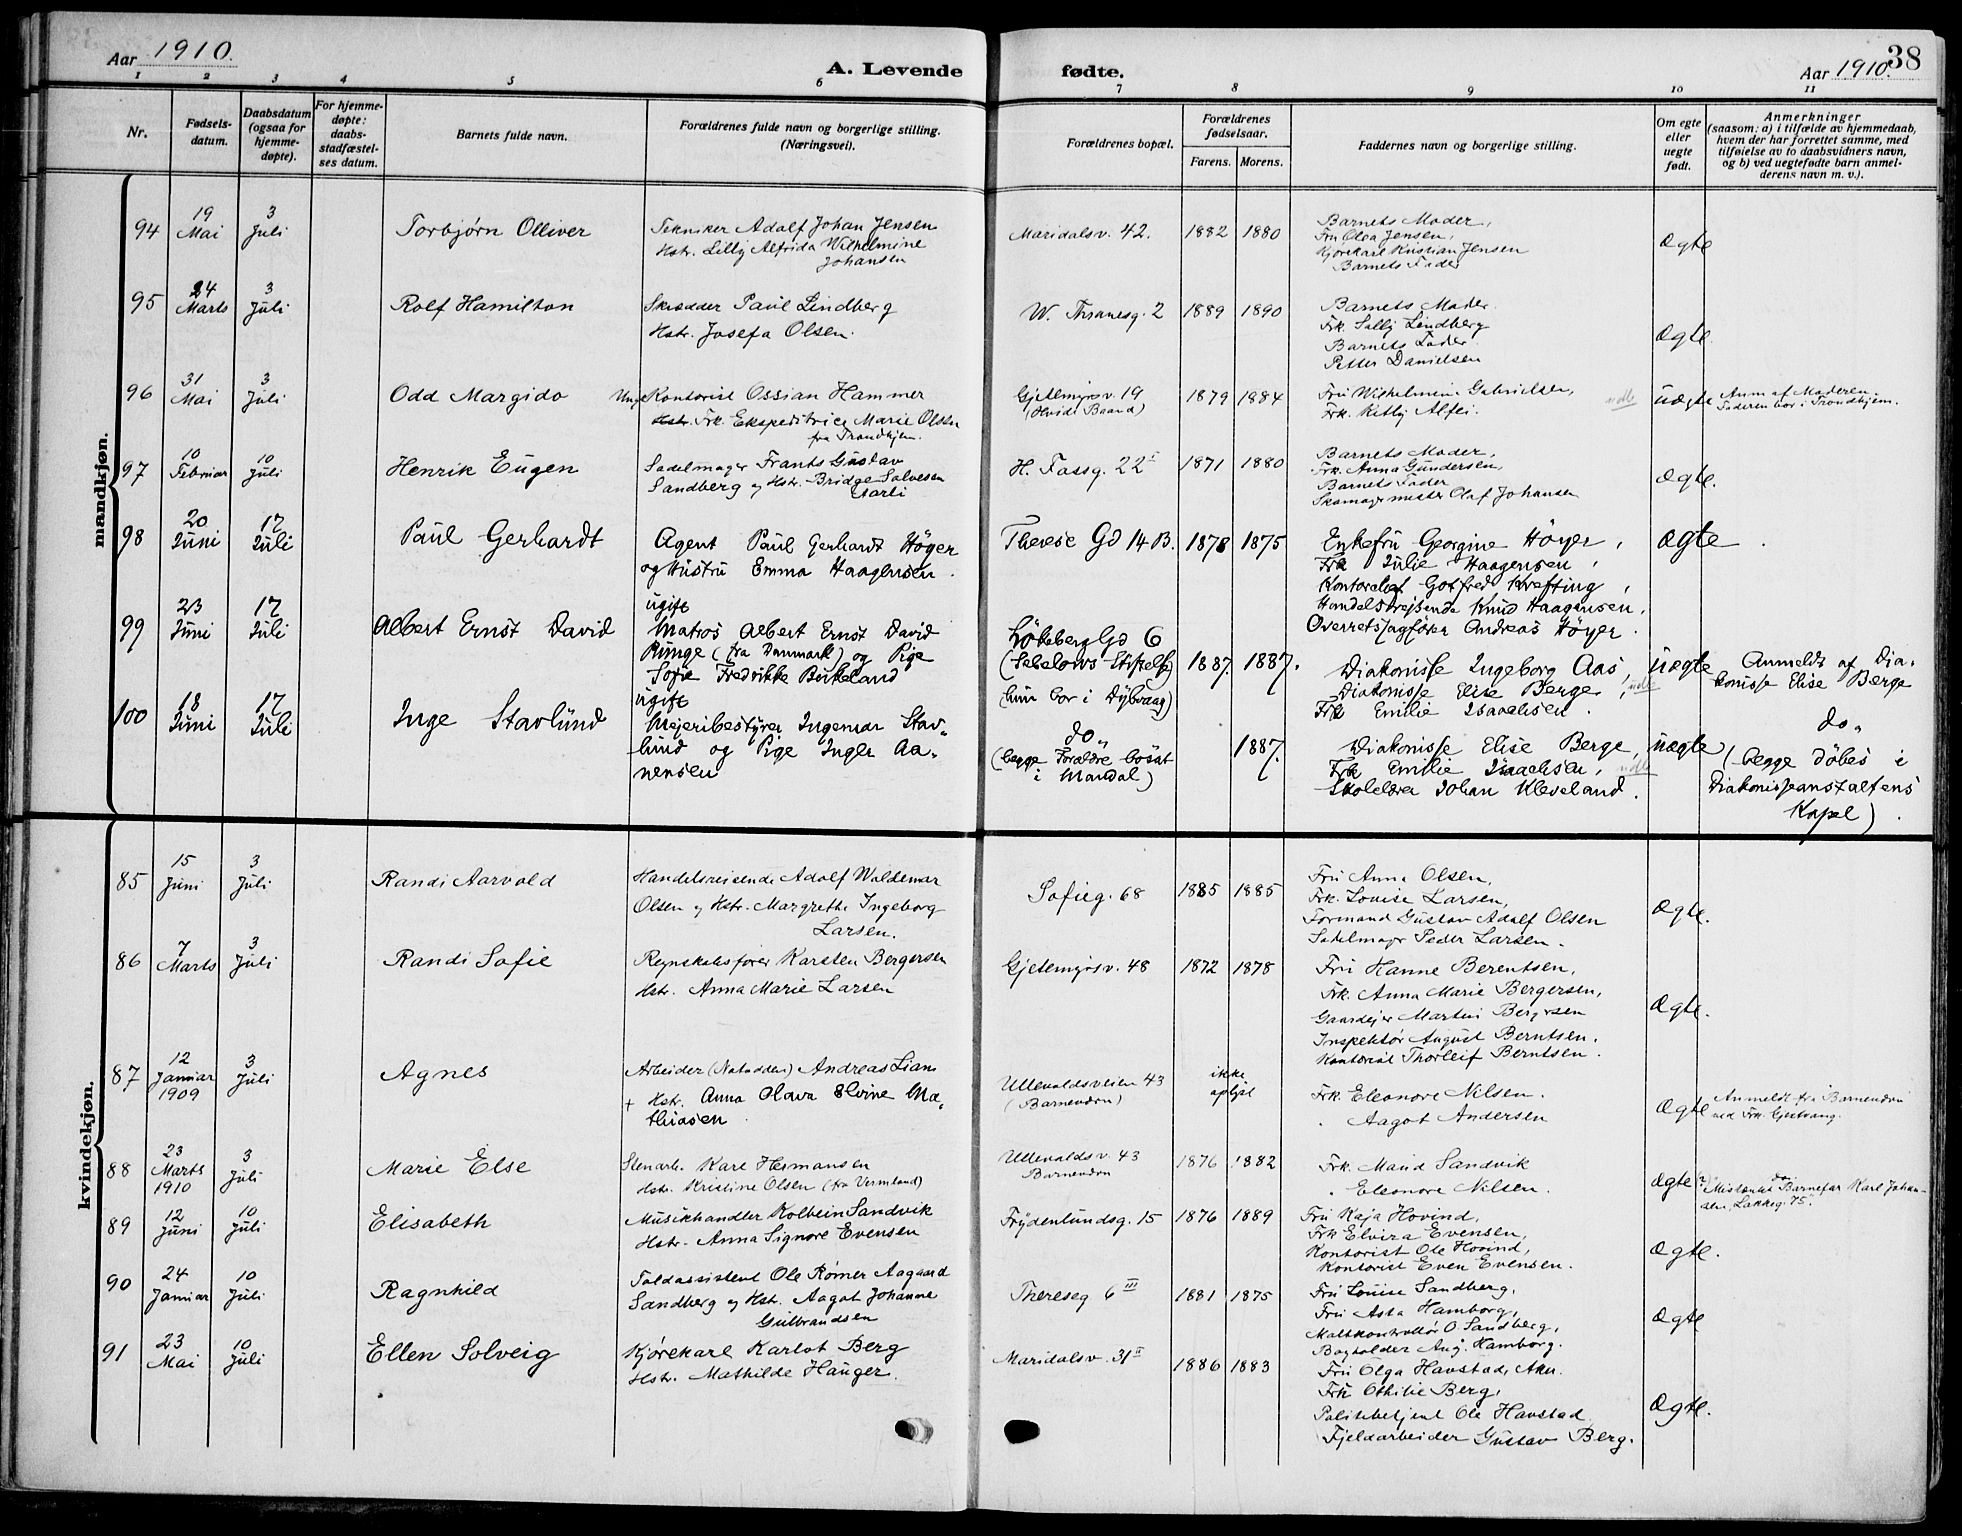 Aar 1910.
A. Levende fødte.
Aar 1910.
38
1 2 3 4 5 6 7 8 9 10 11
Nr.
Fødsels-
datum.
Daabsdatum
(ogsaa for
hjemme-
døpte).
For hjemme-
døpte:
daabs-
stadfæstel-
ses datum.
Barnets fulde navn.
Forældrenes fulde navn og borgerlige stilling.
(Næringsvei).
Forældrenes bopæl.
Forældrenes
fødselsaar.
Farens. Morens.
Faddernes navn og borgerlige stilling.
Om egte
eller
uegte
født.
Anmerkninger
(saasom: a) i tilfælde av hjemmedaab,
hvem der har forrettet samme, med
tilføielse av to daabsvidners navn,
og b) ved uegtefødte barn anmel-
derens navn m. v.).
mandkjøn.
94
19
Mai
3
Juli
Torbjørn Olliver
Tekniker Adolf Johan Jensen
Hstr. Lilly Alfrida Wilhelmine
Johansen
Maridalsv. 42.
1882 1880
Barnets Moder,
Fru Olga Jensen,
Kjørekarl Kristian Jensen
Barnets Fader
Ægte
95
24
Marts
3
Juli
Rolf Hamilton
Skrædder Paul Lindberg
Hstr. Josefa Olsen.
W. Thranesg. 2
1889 1890
Barnets Moder.
Frk. Sally Lindberg
Barnets Fader
Petter Danielsen
Ægte.
96
31
Mai
3
Juli
Odd Margido
Ung. Kontorist Ossian Hammer
Hstr. Frk. Ekspeditrice Marie Olsen
fra Trondhjem.
Gjetemyrsv. 19
(Hvide Baand)
1879 1884
Fru Wilhelmine Gabrielsen,
Frk. Kitty Alfei.
uegte
Anm af Moderen.
Faderen bor i Trondhjem.
97
10
Februar
10
Juli
Henrik Eugen
Sadelmager Frants Gustav
Sandberg og Hstr. Bridge Solvesen
H. Fossg. 22 I
1871 1880
Barnets Moder,
Frk. Anna Gundersen,
Barnets Fader
Skomagermester Olaf Johansen
Ægte.
98
20
Juni
17
Juli
Paul Gerhardt
Agent Paul Gerhardt Höyer
og Hustru Emma Haagensen.
Therese Gd 14 B.
1878 1875
Enkefru Georgine Höyer,
Frk Julie Haagensen,
Kontorchef Gotfred Krefting,
Handelsrejsende Knud Haagensen.
Overretssagfører Andreas Höyer.
Ægte.
99
23
Juni
17
Juli
Albert Ernst David
ugift
Matros Albert Ernst David
Runge (fra Danmark) og Pige
Sofie Fredrikke Birkeland
Lökeberg Gd 6
(Sebelows Stiftelse)
hun bor i Dybvaag)
1887. 1887.
Diakonisse Ingeborg Aas,
Diakonisse Elise Berge,
Frk Emilie Isaachsen.
uegte
Anmeldt af Dia-
konisse Elise Berge
100
18
Juni
17
Juli
Inge Stavlund
ugift
Mejeribestyrer Ingemar Stav-
lund og Pige Inger Aa-
nensen
do.
(begge Forældre bosat
i Mandal)
1887.
Diakonisse Elise Berge,
Frk Emilie Isaachsen,
Skolelærer Johan Kleveland.
uegte
do.
(begge döbes i
Diakonisseanstaltens
Kapel).
kvindekjøn.
85
15
Juni
3
Juli
Randi Aarvold
Handelsreisende Adolf Waldemar
Olsen og Hstr. Margrethe Ingeborg
Larsen.
Sofieg. 68
1885 1885
Fru Anna Olsen,
Frk. Louise Larsen,
Formand Gustav Adolf Olsen
Sadelmager Peder Larsen.
Ægte.
86
7
Marts
3
Juli
Randi Sofie
Regnskabsfører Karsten Bergersen
Hstr. Anna Marie Larsen
Gjetemyrsv. 48
1872 1878
Fru Hanne Berentsen,
Frk. Anna Marie Bergersen,
Gaardejer Martin Bergersen
Inspektør August Berntsen.
Kontorist Thorleif Berntsen.
Ægte.
87
12
Januar
1909
3
Juli
Agnes
Arbeider (Notodden) Andreas Lian
+ Hstr. Anna Olava Elvine Ma-
thiasen.
Ullevaldsveien 43
(Barnehvn)
ikke
oplyst
Frk. Eleonore Nilsen.
Aagot Andersen
Ægte
Anmeldt fra Barnehvn
ved Frk. Gjestvang.
88
23
Marts
1910
3
Juli
Marie Else
Stenarb. Karl Hermansen
Hstr. Kristine Olsen (fra Vermland)
Ullevaldsv. 43
Barnehvn
1876 1882
Frk. Maud Sandvik
Eleonore Nilsen.
Ægte (?)
do.
"Mistænkt Barnefar Karl Johan-
sen, Lakkeg. 75".
89
12
Juni
10
Juli
Elisabeth
Musikhandler Kolbein Sandvik
Hstr. Anna Signore Evensen
Frydenlundsg. 15
1876 1889
Fru Kaja Hovind,
Frk Elvira Evensen,
Kontorist Ole Hovind,
Kontorist Even Evensen.
Ægte.
90
24
Januar
10
Juli
Ragnhild
Toldassistent Ole Rømer Aagaard
Sandberg og Hst. Aagot Johanne
Gulbrandsen
Thereseg 6 III
1881 1875
Fru Louise Sandberg,
Fru Asta Hamborg,
Maltkontrollør O. Sandberg,
Bogholder Aug. Hamborg.
Ægte
91
23
Mai
10
Juli
Ellen Solveig
Kjørekarl Karlot Berg
Hstr. Mathilde Hauger.
Maridalsv. 31 II
1886 1883
Fru Olga Havstad, Aker.
Frk Othilie Berg,
Politibetjent Ole Havstad
Fjeldarbeider Gustav Berg.
Ægte.